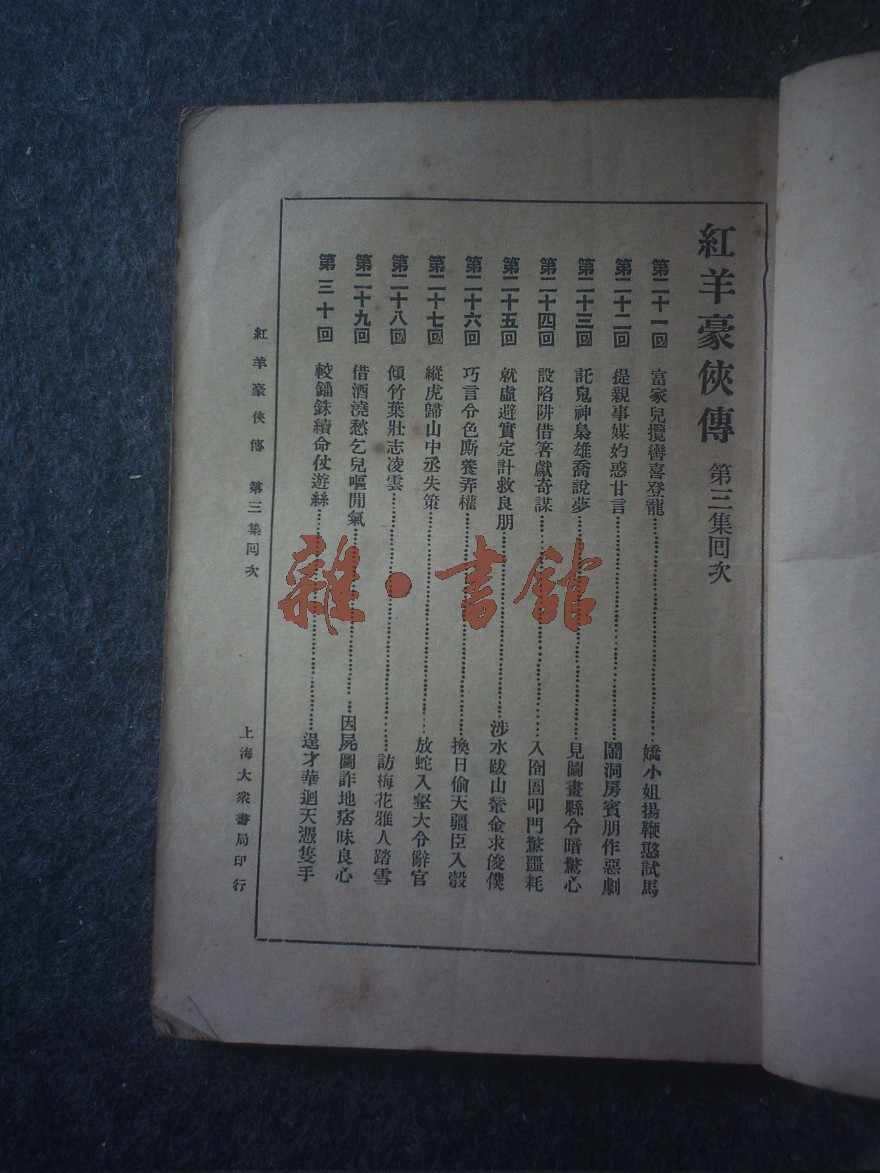 紅羊豪俠傳 第三集回次
第二十一回 富家兒攬轡喜登龍………嬌小姐揚鞭愍試馬
第二十二回 提親事媒妁惑甘言………鬧洞房賓朋作惡劇
第二十三回 託鬼神梟雄喬說夢………見圖畫縣令暗驚心
第二十四回 設陷阱借箸獻奇謀………入囹圄叩門驚噩耗
第二十五回 就虛避實定計救良朋………涉水跋山輦金求俊僕
第二十六回 巧言令色廝養弄權………換日偷天疆臣入彀
第二十七回 縱虎歸山中丞失策………放蛇入壑大令辭官
第二十八回 傾竹葉壯志凌雲………訪梅花雅人踏雪
第二十九回 借酒澆愁乞兒嘔閒氣………因屍圖詐地痞昧良心
第三十回 較錙銖續命仗遊絲………逞才華迴天憑隻手
紅羊豪俠傳 第三集回次
上海大衆書局印行
雜·書館